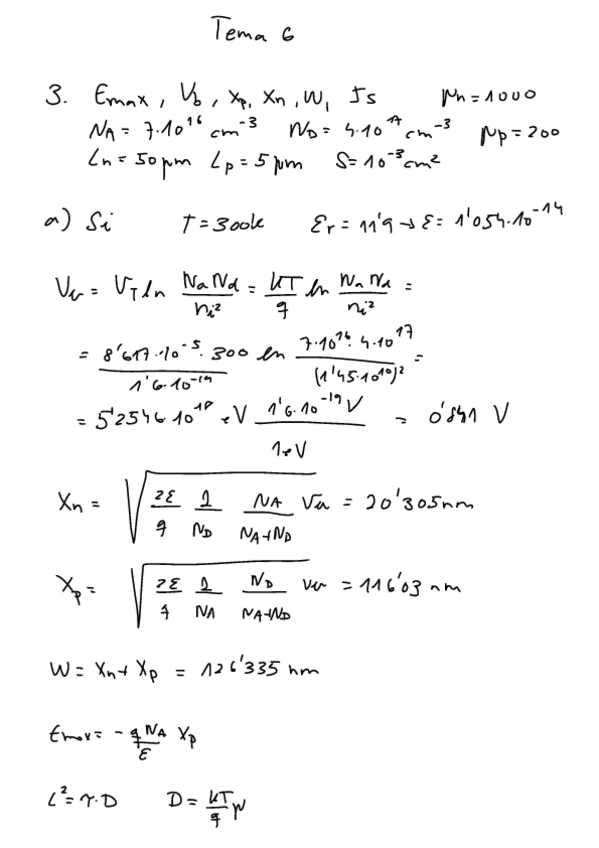 Tema 6
3. Emax, Vb, Xp, Xn, W, Js μn = 1000
NA = 7·10^16 cm^-3 ND = 4·10^17 cm^-3 μp = 200
Ln = 50 μm Lp = 5 μm S = 10^-3 cm^2
a) Si T = 300k Er = 11'9 → ε = 1'054·10^-14
Vbi = VT ln NaNd/ni^2 = kT/q ln NaNd/ni^2 =
= 8'617·10^-5·300/1'6·10^-19 ln 7·10^16·4·10^17/(1'45·10^10)^2 =
= 5'2546·10^18 eV 1'6·10^-19 V/1eV = 0'841 V
Xn = √(2ε/q 1/ND NA/NA+ND Vbi) = 20'305 nm
Xp = √(2ε/q 1/NA ND/NA+ND Vbi) = 116'03 nm
W = Xn + Xp = 126'335 nm
Emax = - qNA/ε Xp
L^2 = τ·D D = kT/q μ